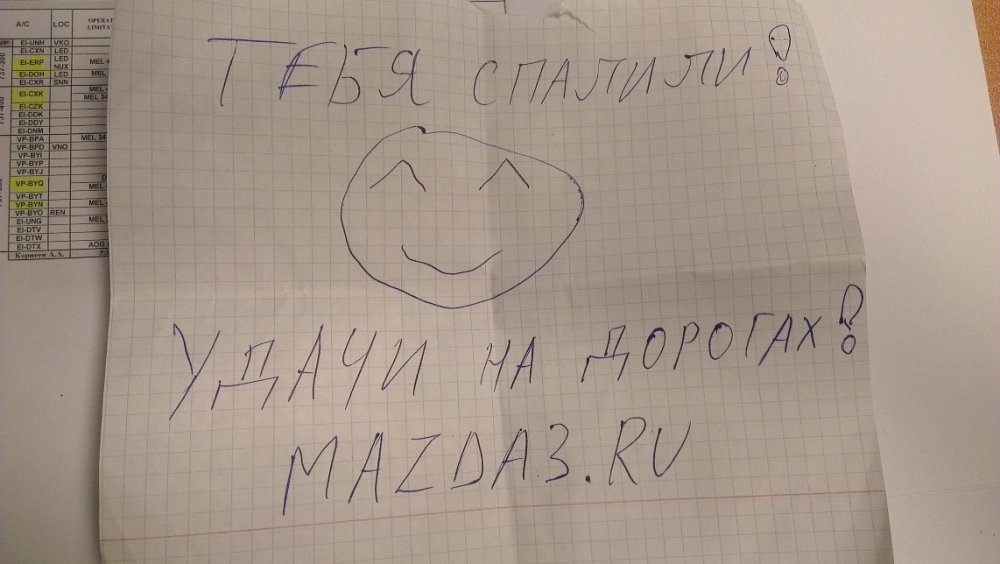 A/C LOC OPERAT LIMITA
EI-UNH VKO
EI-CXN LED
EI-ERP LED MEL 4
NUX
EI-DOH LED MEL
EI-CXR SNN
EI-CXK MEL
MEL 34
EI-CZK
EI-DDK
EI-DDY
EI-DNM
VP-BPA MEL 34
VP-BPD VNO
VP-BYI
VP-BYP
VP-BYJ
VP-BYQ D
MEL
VP-BYT
VP-BYN MEL
VP-BYO REN
EI-UNG MEL 2
EI-DTV
EI-DTW
EI-DTX AOG
Корнеев А.А.
ТЕБЯ СПАЛИЛИ!
УДАЧИ НА ДОРОГАХ!
MAZDA3.RU